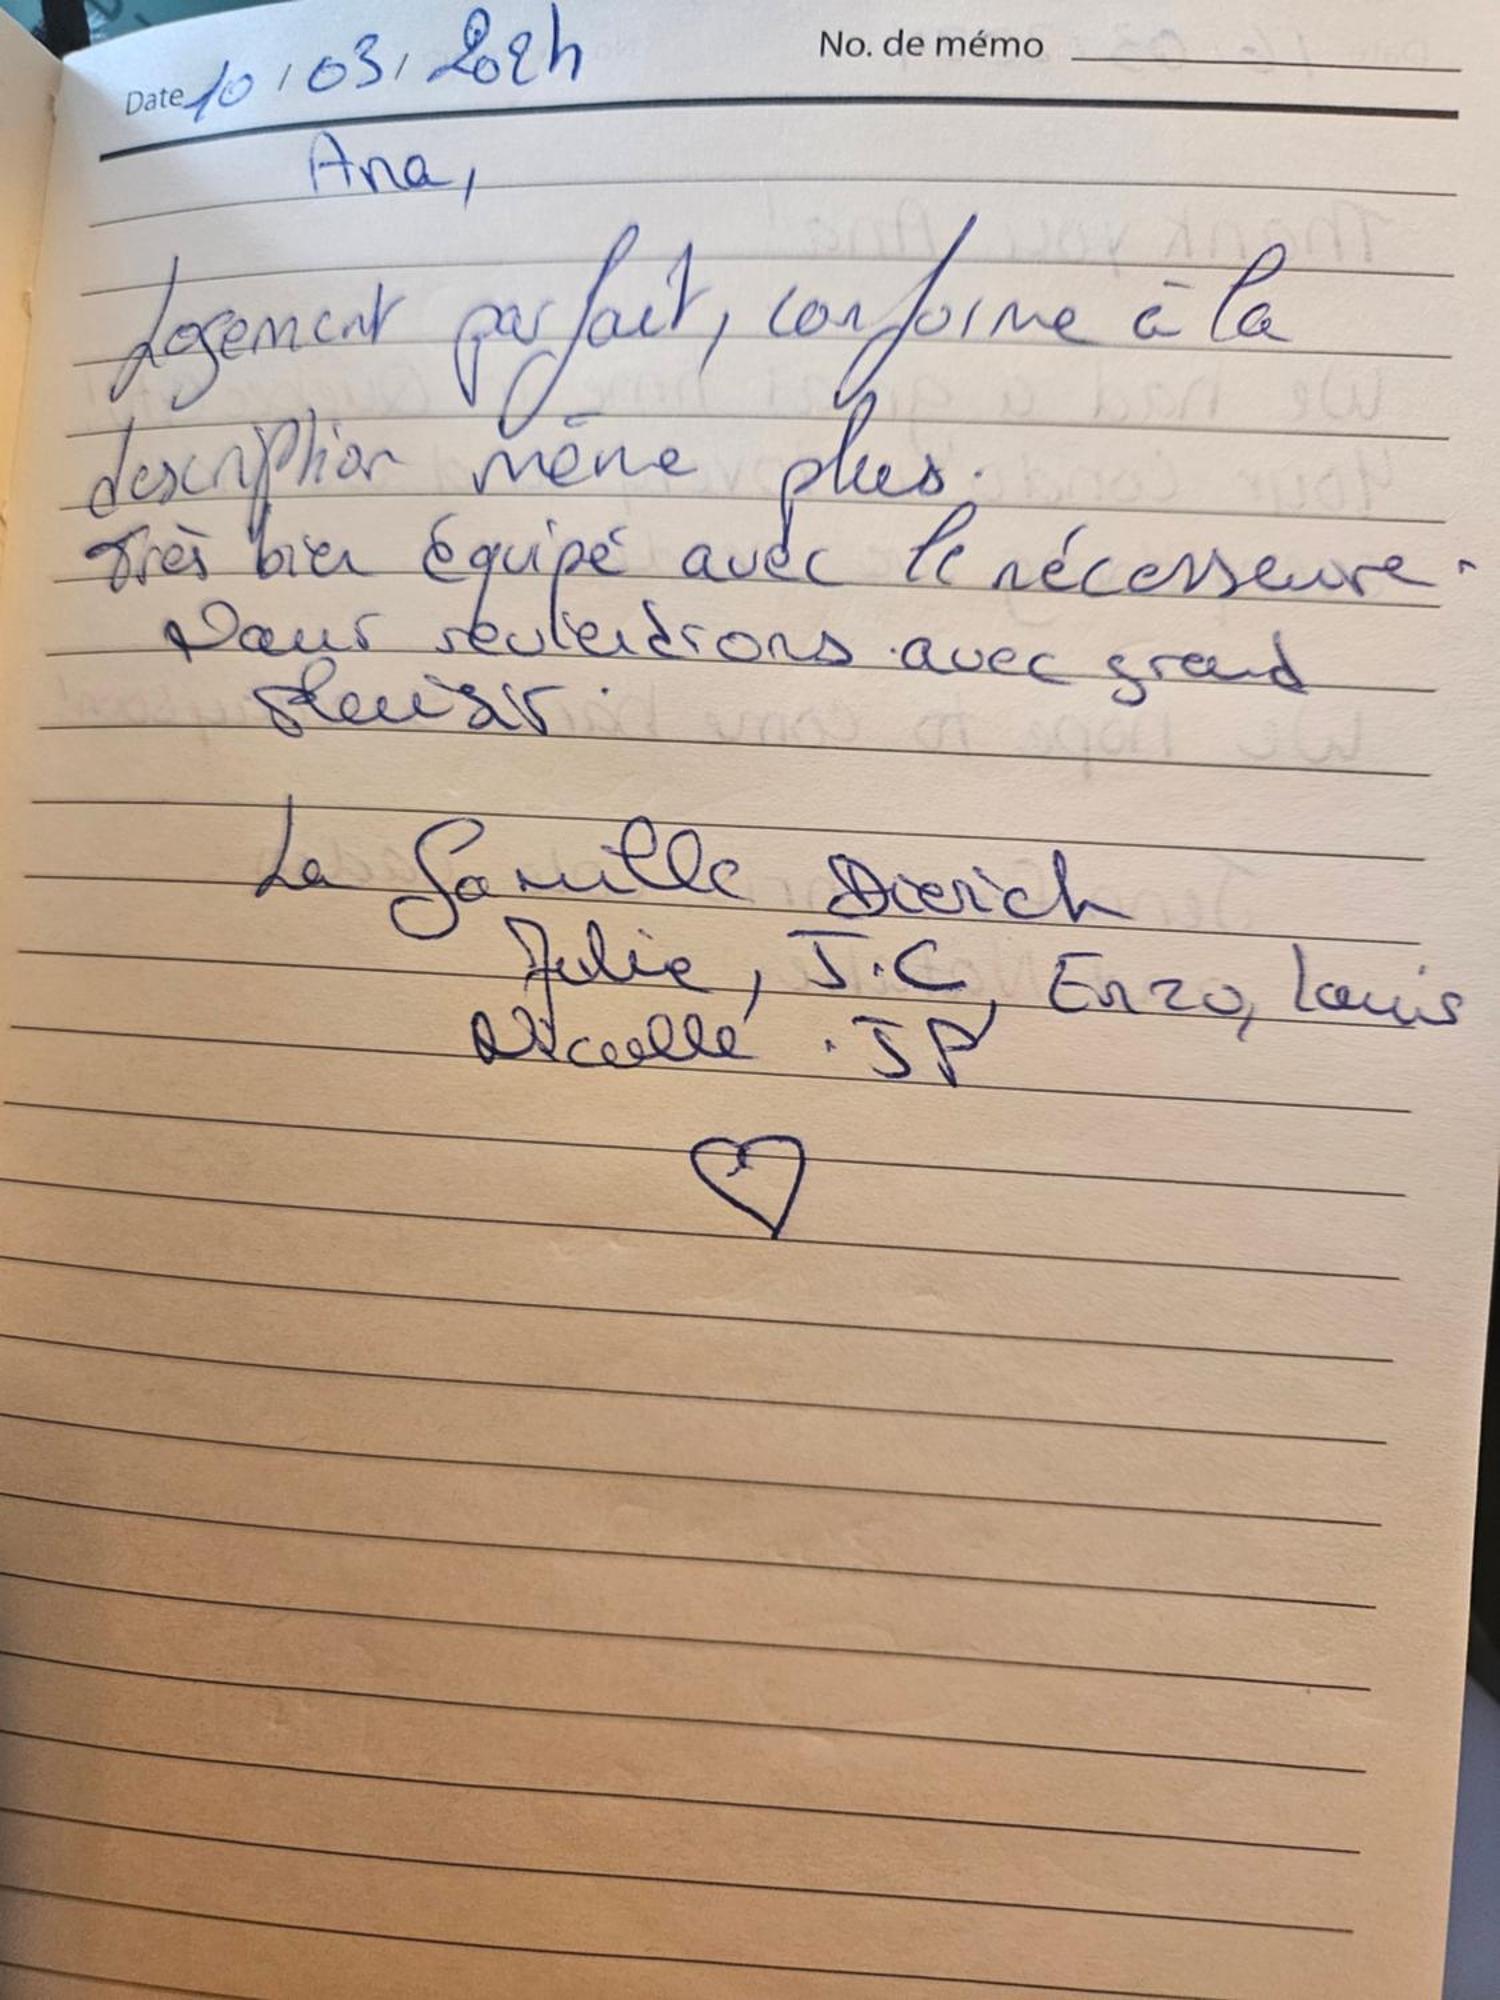 No. de mémo
Date 10 / 03 / 2024
Ana,
Logement parfait, conforme à la
description même plus.
Très bien équipé avec le nécessaire.
Nous reviendrons avec grand
plaisir.
La famille Dierich
Julie, J.C, Enzo, Louis
JP